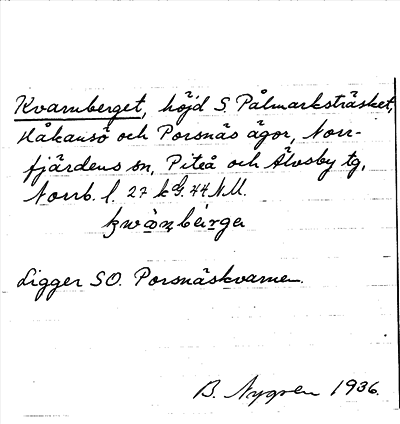 Kvarnberget, höjd S. Pålmarksträsket,
Håkansö och Porsnäs ägor, Norr-
fjärdens sn, Piteå och Älvsby tg,
Norrb. l. 27 k G. 44 N.M.
Ligger SO. Porsnäskvarnen.
B. Nygren 1936.